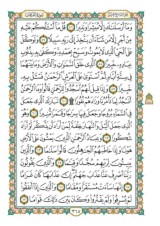 وَمَآ أَرْسَلْنَٰكَ إِلَّا مُبَشِّرًا وَنَذِيرًا قُلْ مَآ أَسْـَٔلُكُمْ عَلَيْهِ
مِنْ أَجْرٍ إِلَّا مَن شَآءَ أَن يَتَّخِذَ إِلَىٰ رَبِّهِۦ سَبِيلًا وَتَوَكَّلْ
عَلَى ٱلْحَىِّ ٱلَّذِى لَا يَمُوتُ وَسَبِّحْ بِحَمْدِهِۦ وَكَفَىٰ بِهِۦ بِذُنُوبِ
عِبَادِهِۦ خَبِيرًا ٱلَّذِى خَلَقَ ٱلسَّمَٰوَٰتِ وَٱلْأَرْضَ وَمَا بَيْنَهُمَا
فِى سِتَّةِ أَيَّامٍ ثُمَّ ٱسْتَوَىٰ عَلَى ٱلْعَرْشِ ٱلرَّحْمَٰنُ فَسْـَٔلْ بِهِۦ
خَبِيرًا وَإِذَا قِيلَ لَهُمُ ٱسْجُدُوا۟ لِلرَّحْمَٰنِ قَالُوا۟ وَمَا ٱلرَّحْمَٰنُ
أَنَسْجُدُ لِمَا تَأْمُرُنَا وَزَادَهُمْ نُفُورًا تَبَارَكَ ٱلَّذِى
جَعَلَ فِى ٱلسَّمَآءِ بُرُوجًا وَجَعَلَ فِيهَا سِرَٰجًا وَقَمَرًا مُّنِيرًا
وَهُوَ ٱلَّذِى جَعَلَ ٱلَّيْلَ وَٱلنَّهَارَ خِلْفَةً لِّمَنْ أَرَادَ أَن يَذَّكَّرَ
أَوْ أَرَادَ شُكُورًا وَعِبَادُ ٱلرَّحْمَٰنِ ٱلَّذِينَ يَمْشُونَ عَلَى
ٱلْأَرْضِ هَوْنًا وَإِذَا خَاطَبَهُمُ ٱلْجَٰهِلُونَ قَالُوا۟ سَلَٰمًا
وَٱلَّذِينَ يَبِيتُونَ لِرَبِّهِمْ سُجَّدًا وَقِيَٰمًا وَٱلَّذِينَ يَقُولُونَ
رَبَّنَا ٱصْرِفْ عَنَّا عَذَابَ جَهَنَّمَ إِنَّ عَذَابَهَا كَانَ غَرَامًا
إِنَّهَا سَآءَتْ مُسْتَقَرًّا وَمُقَامًا وَٱلَّذِينَ إِذَآ أَنفَقُوا۟
لَمْ يُسْرِفُوا۟ وَلَمْ يَقْتُرُوا۟ وَكَانَ بَيْنَ ذَٰلِكَ قَوَامًا
٣٦٥